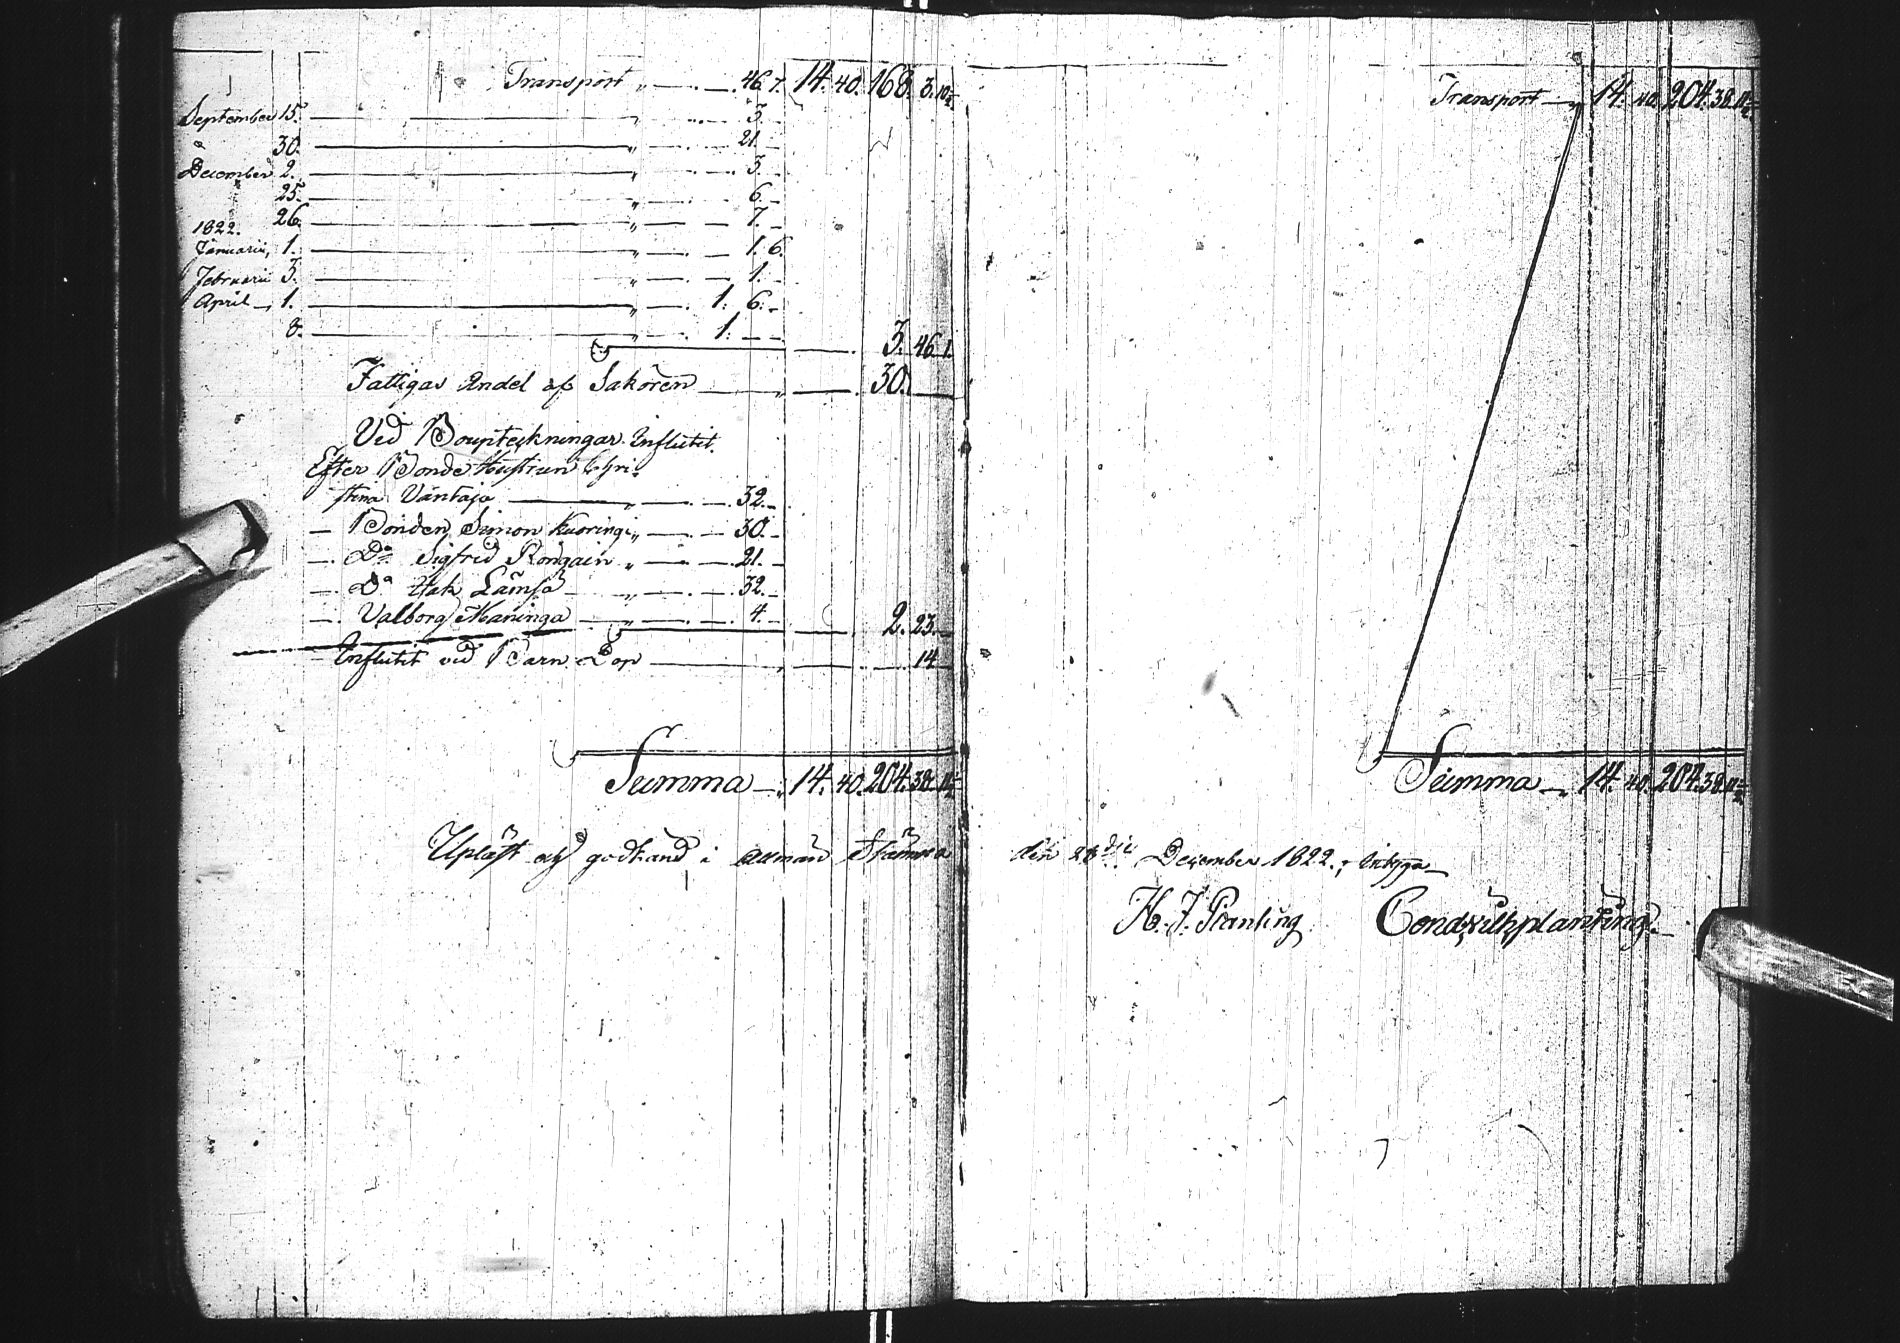 Transport „ 46. 7. 14. 40. 168. 3. 10½
September 15. „ 3.
30. „ 21.
December 2. „ 3.
25. „ 6.
1822. 26. „ 7.
Januarii, 1. „ 1. 6.
Februarii 3. „ 1.
April 1. „ 1. 6.
8. „ 1. 3. 46. 1.
Fattigas Andel af Sakören „ 30.
Vid Boupteckningar Influtit.
Efter Bonde Hustrun Chri-
stina Väntaja „ 32.
Bonden Simon Kuoringi „ 30.
Do Sigfrid Rongain „ 21.
Do Isak Lämsä „ 32.
Valborg Haninga „ 4. 2. 23.
Influtit vid Barn Dop „ 14
Summa „ 14. 40. 204. 38. 11½
Upläst och godkänd i allmän Stämma
Transport „ 14. 40. 204. 38. 11½
Summa „ 14. 40. 204. 38. 11½
den 28 die December 1822., intyga
H. J. Planting